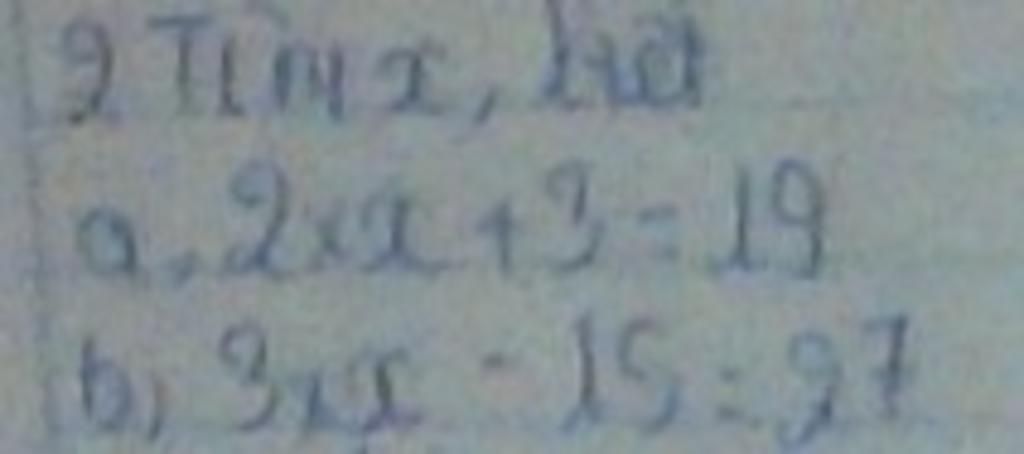 2 Tìm x, biết
a, 2 x x + 3 = 19
b, 3 x x - 15 = 27